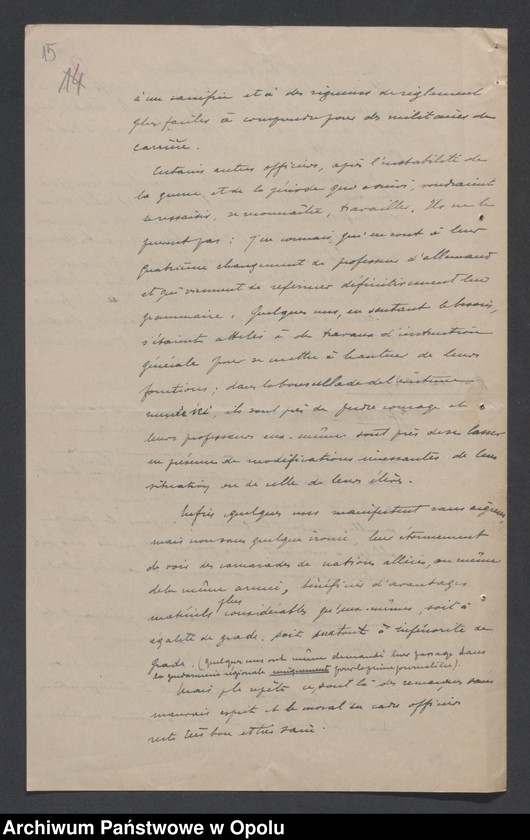 15
14
à un sacrifice et à des rigueurs de règlement
plus faciles à comprendre pour des militaires de
carrière.
Certains autres officiers, après l'instabilité de
la guerre et de la période qui a suivi, voudraient
se ressaisir, se reconnaître, travailler. Ils ne le
peuvent pas : j'en connais qui en sont à leur
quatrième changement de professeur d'allemand
et qui viennent de refermer définitivement leur
grammaire. Quelques uns, en sentant le besoin,
s'étaient attelés à des travaux d'instruction
générale pour se mettre à hauteur de leurs
fonctions ; dans la bousculade de l'
ils sont près de perdre courage et
leurs professeurs eux-mêmes sont près de se lasser
en présence de modifications incessantes de leur
situation ou de celle de leurs élèves.
Enfin quelques uns manifestent sans aigreur,
mais non sans quelque ironie, leur étonnement
de voir des camarades de nations alliées, ou même
de la même armée, bénéficier d'avantages
matériels plus considérables qu'eux-mêmes, soit à
égalité de grade, soit surtout à infériorité de
grade. (Quelques uns ont même demandé leur passage dans
la gendarmerie régionale uniquement pour la prime journalière).
Mais, je le répète, ce sont là des remarques sans
mauvais esprit et le moral du cadre officiers
reste très bon et très sain.
Archiwum Państwowe w Opolu